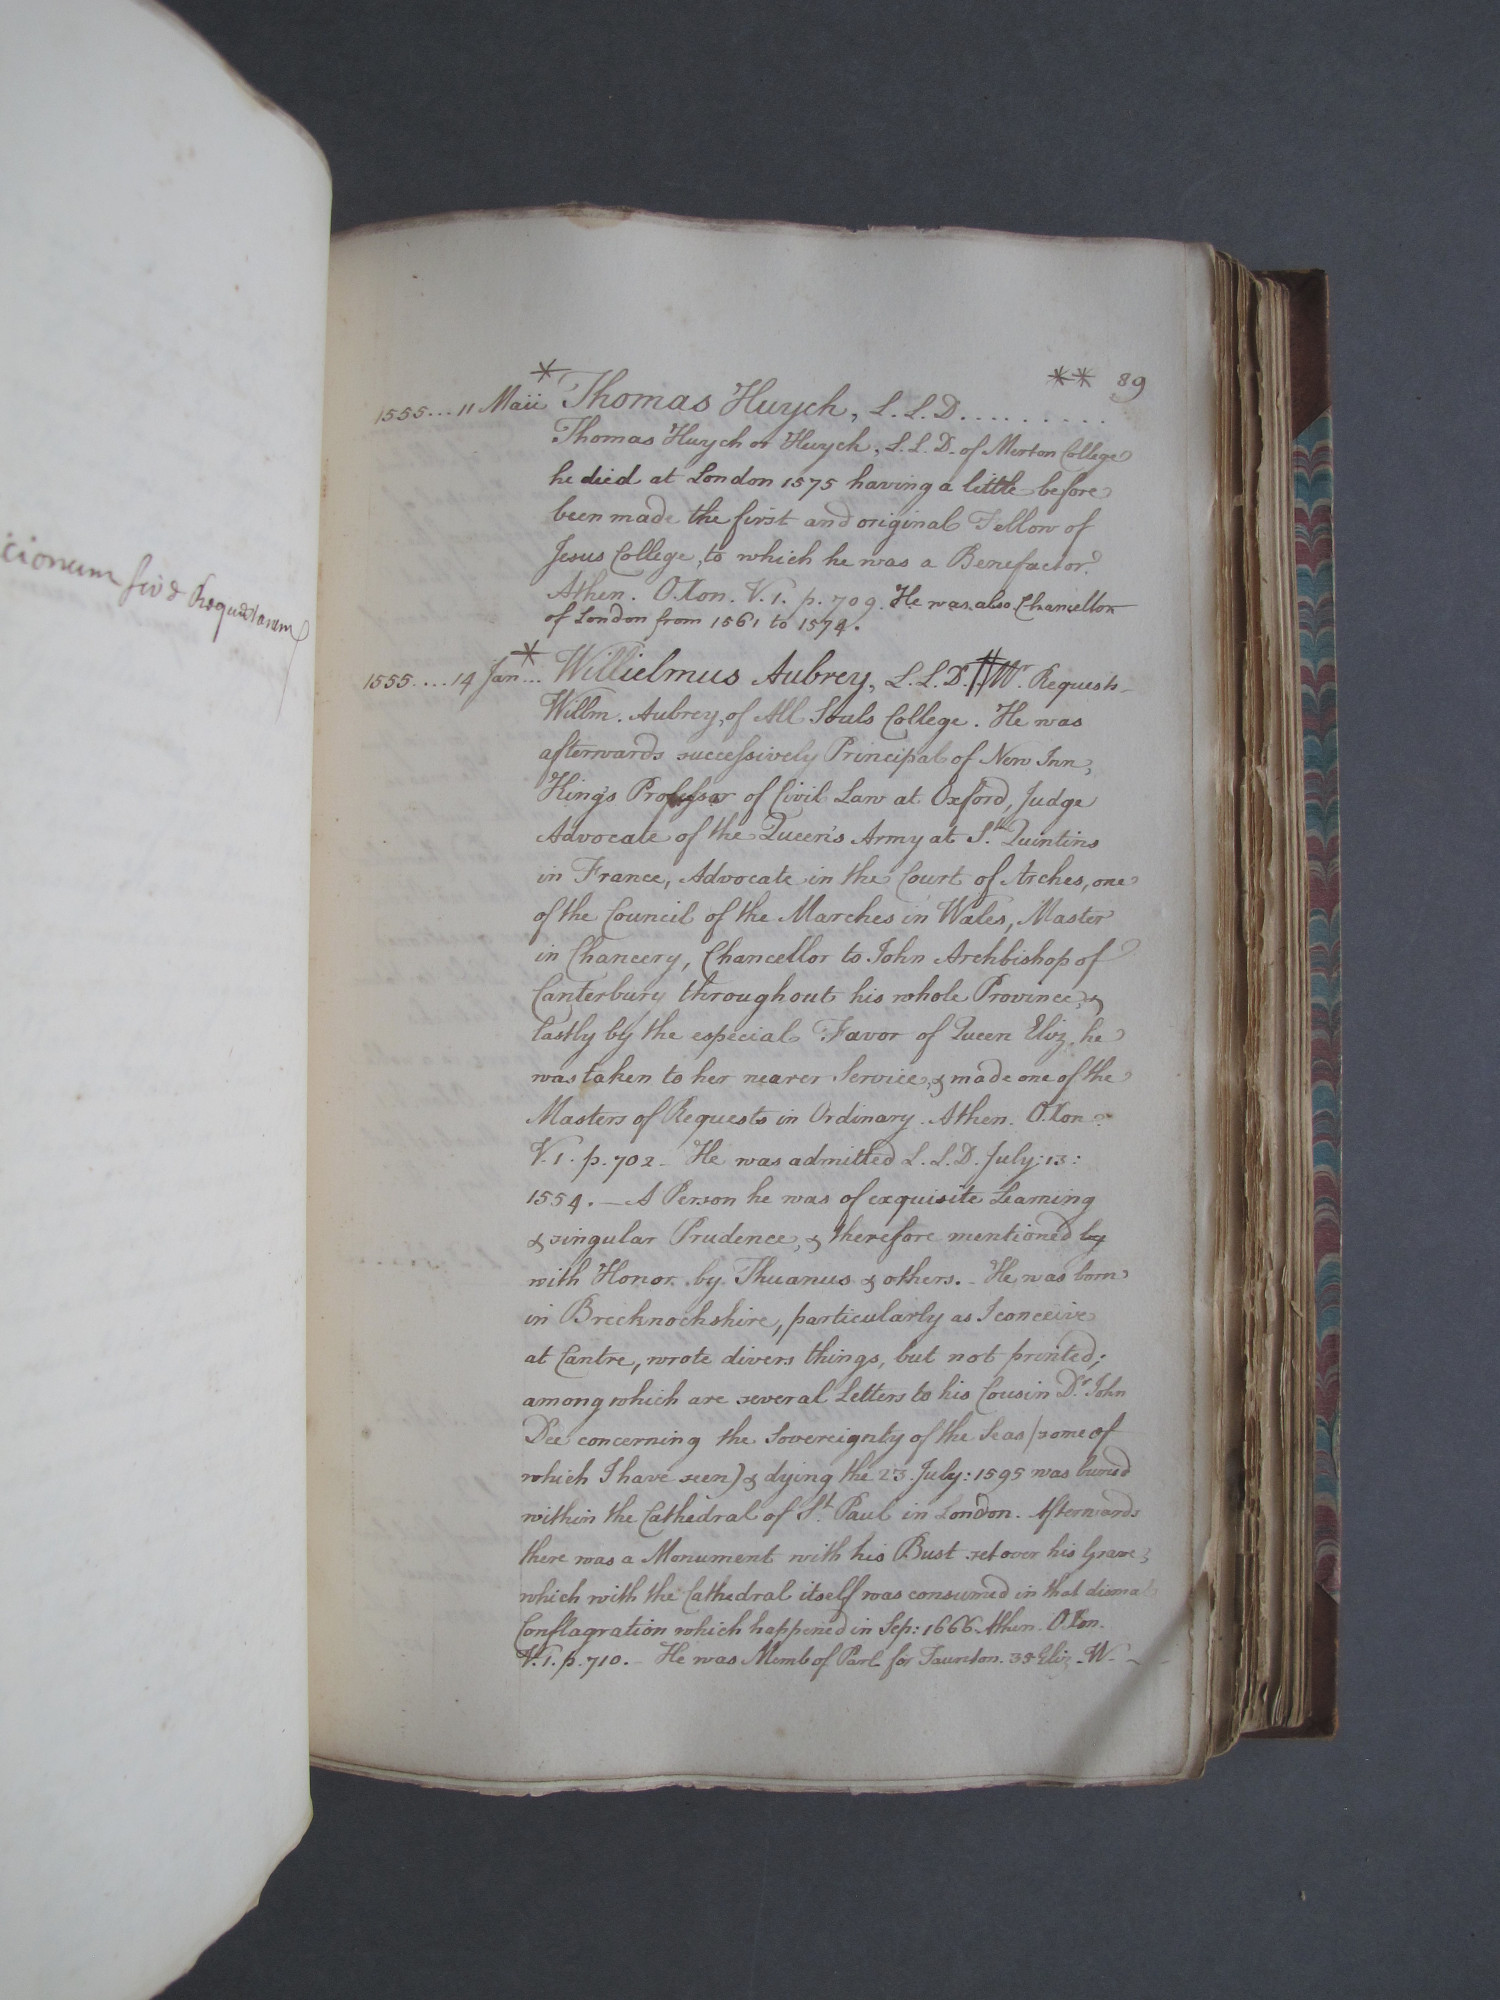 cionum sive Requestarum
** 89
* 1555... 11 Maii Thomas Huych, L.L.D.........
Thomas Huych or Huyck, L.L.D. of Merton College
he died at London 1575 having a little before
been made the first and original Fellow of
Jesus College, to which he was a Benefactor.
Athen. Oxon. V.1. p. 709. He was also Chancellor
of London from 1561 to 1574.
* 1555....14 Jan... Willielmus Aubrey, L.L.D. # Mr. Requests
Willm. Aubrey, of All Souls College. He was
afterwards successively Principal of New Inn,
King's Professor of Civil Law at Oxford, Judge
Advocate of the Queen's Army at St. Quintins
in France, Advocate in the Court of Arches, one
of the Council of the Marches in Wales, Master
in Chancery, Chancellor to John Archbishop of
Canterbury throughout his whole Province, &
lastly by the especial Favor of Queen Eliz. he
was taken to her nearer Service, & made one of the
Masters of Requests in Ordinary. Athen. Oxon.
V.1. p. 702 - He was admitted L.L.D. July: 13:
1554. - A Person he was of exquisite Learning
& singular Prudence, & therefore mentioned by
with Honor by Thuanus & others. - He was born
in Brecknockshire, particularly as I conceive
at Cantre, wrote divers things, but not printed;
among which are several Letters to his Cousin Dr. John
Dee concerning the Sovereignty of the Seas (some of
which I have seen) & dying the 23. July: 1595 was buried
within the Cathedral of St. Paul in London. Afterwards
there was a Monument with his Bust set over his Grave,
which with the Cathedral itself was consumed in that dismal
Conflagration which happened in Sep: 1666. Athen. Oxon.
V.1. p. 710. - He was Memb of Parl for Taunton. Eliz. W.